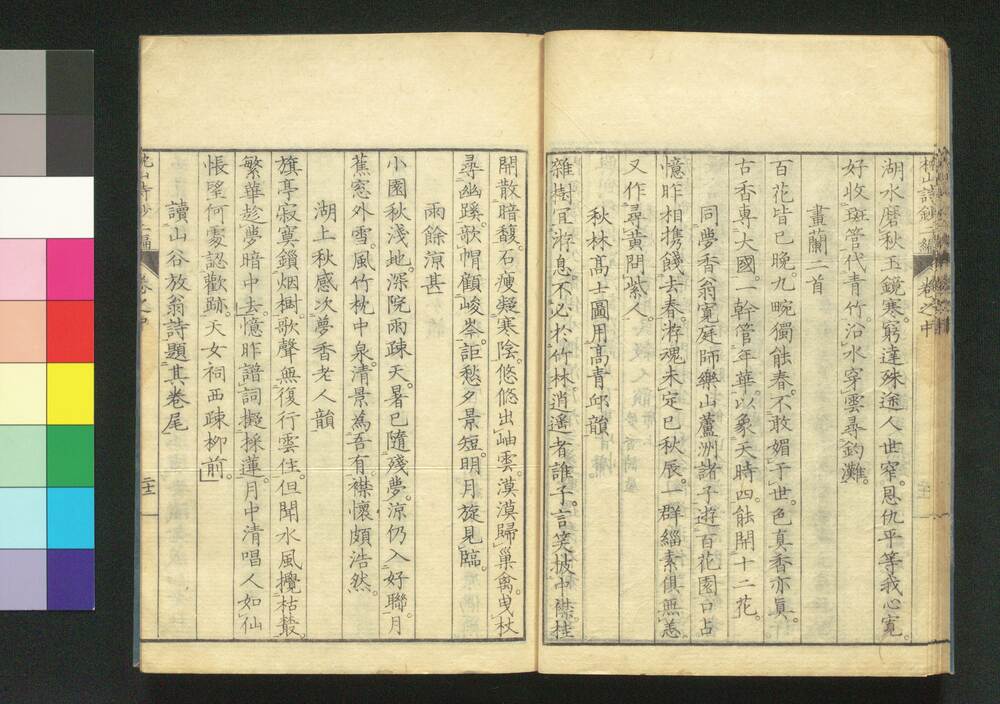 枕山詩鈔二編 卷之中
湖水磨秋玉鏡寒。窮達殊途人世窄。恩仇平等我心寬。
好收斑管代青竹。沿水穿雲尋釣灘。
畫蘭二首
百花皆已晚。九畹獨能春。不敢媚于世。色真香亦眞。
古香専大國。一幹管年華。以象天時四。能開十二花。
同夢香翁寬庭師樂山蘆洲諸子遊百花園口占
憶昨相携餞去春。游魂未定已秋辰。一群緇素俱無恙。
又作尋黃問紫人。
秋林高士圖用高青邱韻
雜樹宜游息。不必於竹林。逍遙者誰子。言笑披中襟。桂
開散暗馥。石瘦凝寒陰。悠悠出岫雲。漠漠歸巢禽。曳杖
尋幽蹊。歌帽顧峻岑。詎愁夕景短。明月旋見臨。
雨餘涼甚
小園秋淺地。深院雨疎天。暑已隨殘夢。涼仍入好聯。月
蕉窓外雪。風竹枕中泉。清景為吾有。襟懷頗浩然。
湖上秋感次夢香老人韻
旗亭寂寞鎖烟樹。歌聲無復行雲住。但聞水風攪枯叢。
繁華趁夢暗中去。憶昨譜詞擬採蓮。月中清唱人如仙
悵望何處認歡跡。天女祠西疎柳前。
讀山谷放翁詩題其卷尾
枕山詩鈔二編 卷之中 二十二